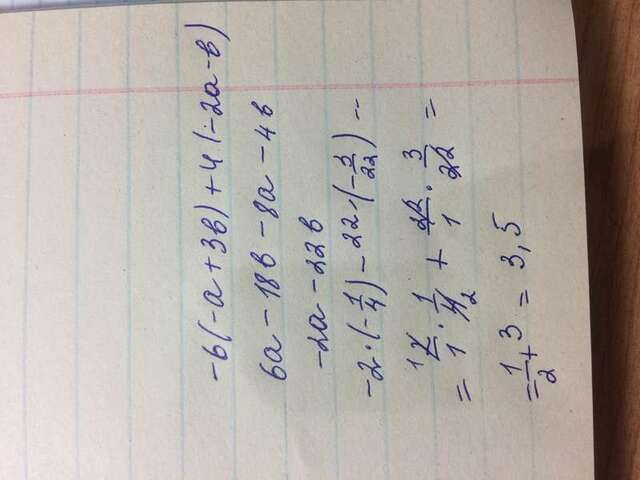 -6(-a+3b)+4(-2a-b)
6a-18b-8a-4b
-2a-22b
-2·(-1/4)-22·(-3/22)--
= 2/1 · 1/4 + 22/1 · 3/22 =
= 1/2 + 3 = 3,5